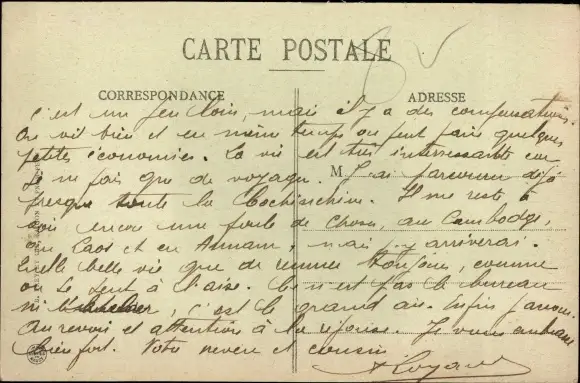 CARTE POSTALE
CORRESPONDANCE
ADRESSE
C'est un peu loin, mais il y a des compensations.
On vit bien et en même temps on peut faire quelques
petites économies. La vie est très intéressante car
je ne fais que de voyager. J'ai parcouru déjà
M
presque toute la Cochinchine. Il me reste à
voir encore une foule de choses, au Cambodge,
au Laos et en Annam, mais j'y arriverai.
Quelle belle vie que de remuer toujours, comme
on se sent à l'aise. Ce n'est pas le bureau
ni l'atelier, c'est le grand air. Enfin
Au revoir et attention à la réponse. Je vous embrasse
bien fort. Votre neveu et cousin